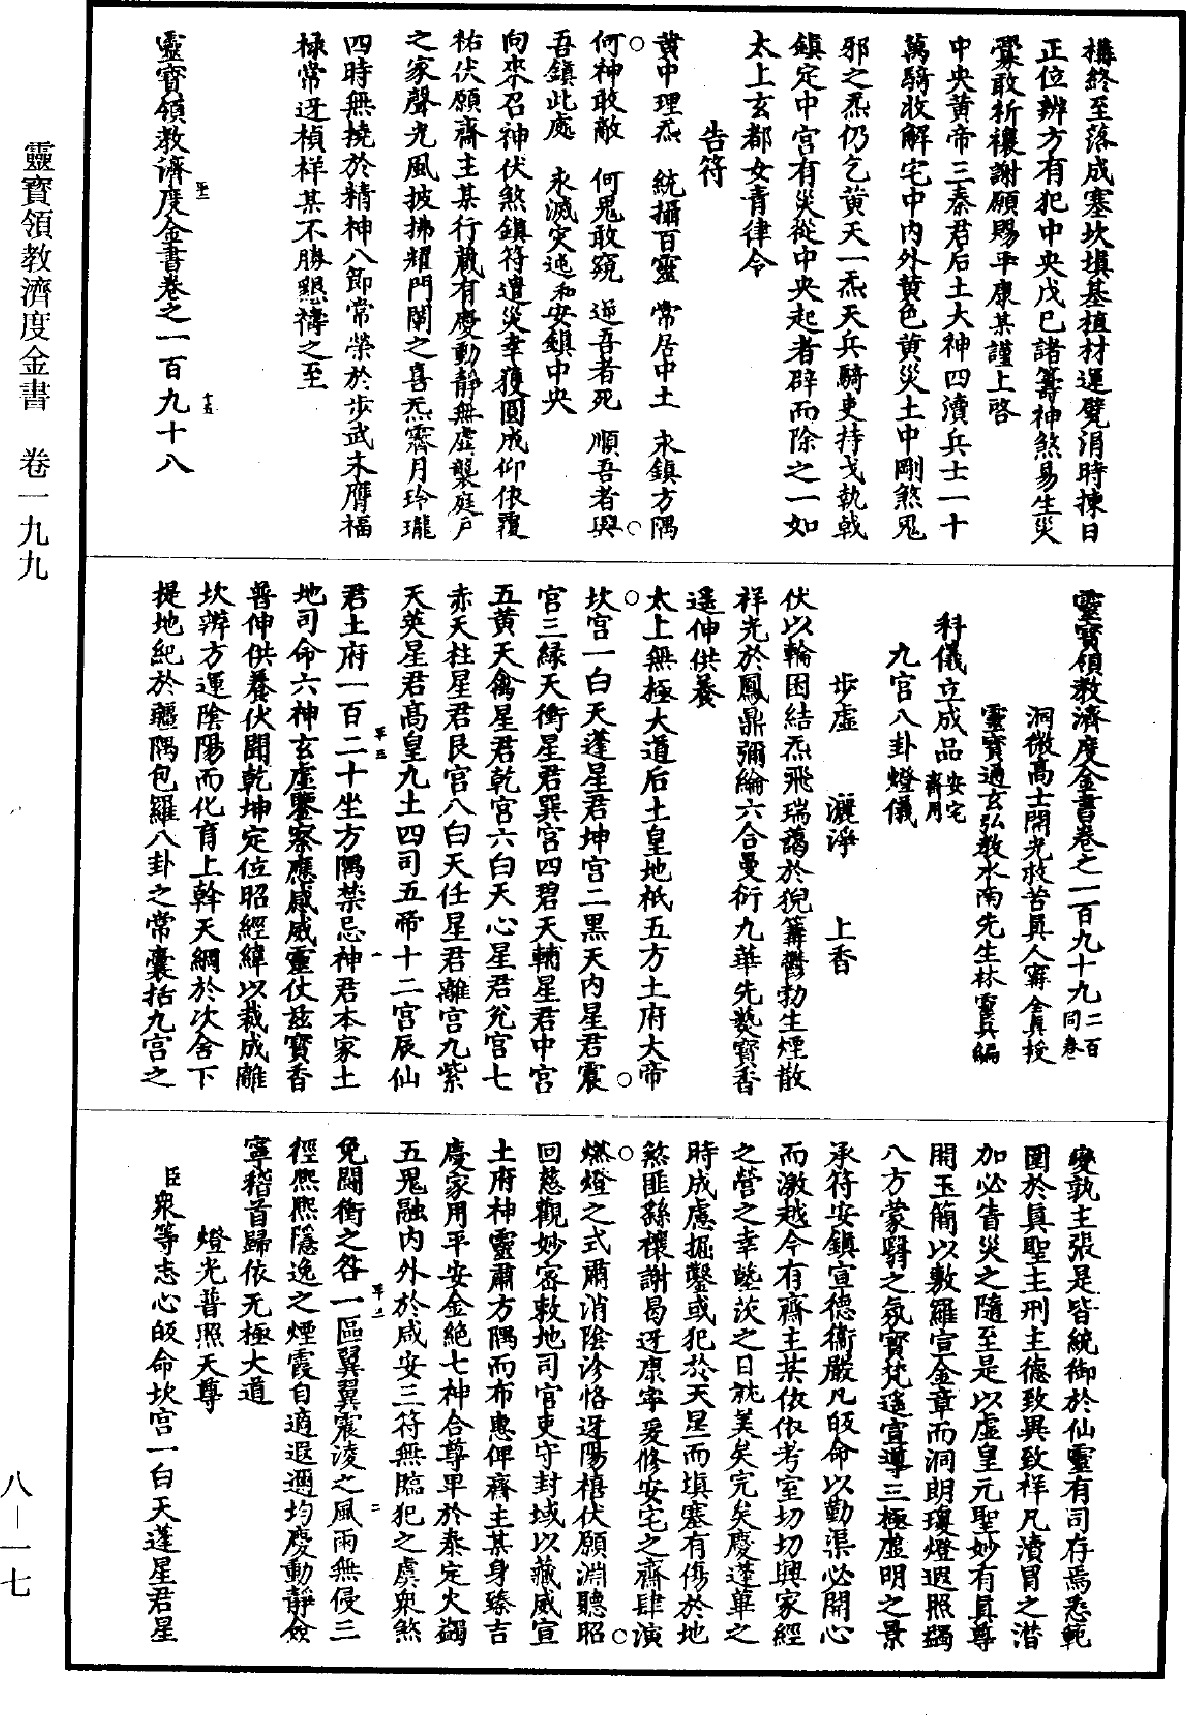 靈寶領教濟度金書　卷一九九
八－一七
構終至落成塞坎塡基植材運甓涓時揀日
正位辨方有犯中央戊巳諸籌神煞易生災
釁敢祈禳謝願賜平康某謹上啓
中央黃帝三秦君后土大神四瀆兵士一十
萬騎收解宅中內外黃色黃災土中剛煞鬼
邪之炁仍乞黃天一炁天兵騎吏持戈執戟
鎮定中宮有災從中央起者辟而除之一如
太上玄都女青律令
告符
黃中理炁　統攝百靈　常居中土　永鎮方隅
何神敢敵　何鬼敢窺　逆吾者死　順吾者興
吾鎮此處　永滅灾迍和安鎮中央
向來召神伏煞鎮符遣災幸獲圓成仰依覆
祐伏願齋主某行藏有慶動靜無虛襲庭戶
之家聲光風披拂耀門闌之喜炁霽月玲瓏
四時無撓於精神八節常榮於步武未膺福
祿常迓禎祥某不勝懇禱之至
靈寶領教濟度金書卷之一百九十八
靈寶領教濟度金書卷之一百九十九　二百同卷
洞微高士開光救苦眞人甯全眞授
靈寶通玄弘教水南先生林靈眞編
科儀立成品　安宅齋用
九宮八卦燈儀
步虛　灑淨　上香
伏以輪囷結炁飛瑞藹於猊篝鬱勃生煙散
祥光於鳳鼎彌綸六合曼衍九華先爇寶香
遥伸供養
太上無極大道后土皇地祇五方土府大帝
坎宮一白天蓬星君坤宮二黑天內星君震
宮三綠天衝星君巽宮四碧天輔星君中宮
五黃天禽星君乾宮六白天心星君兌宮七
赤天柱星君艮宮八白天任星君離宮九紫
天英星君高皇九土四司五帝十二宮辰仙
君土府一百二十坐方隅禁忌神君本家土
地司命六神玄虛鑒察應感威靈仗兹寶香
普伸供養伏聞乾坤定位昭經緯以裁成離
坎辨方運陰陽而化育上斡天綱於次舍下
提地紀於疆隅包羅八卦之常囊括九宮之
變孰主張是皆統御於仙靈有司存焉悉範
圍於眞聖主刑主德致異致祥凡瀆冒之潛
加必眚災之隨至是以虛皇元聖妙有眞尊
開玉簡以敷羅宣金章而洞朗瓊燈遐照蠲
八方蒙翳之氛寶梵遥宣導三極虛明之景
承符安鎮宣德衛嚴凡皈命以勤渠必開心
而激越今有齋主某依依考室切切興家經
之營之幸墍茨之日就美矣完矣慶蓬蓽之
時成慮掘鑿或犯於天星而塡塞有傷於地
煞匪繇禳謝曷迓康寧爰修安宅之齋肆演
燃燈之式爾消陰沴恪迓陽禧伏願淵聽昭
回慈觀妙密敕地司官吏守封域以藏威宣
土府神靈肅方隅而布惠俾齋主某身臻吉
慶家用平安金絶七神合尊卑於泰定火蠲
五鬼融內外於咸安三符無臨犯之虞衆煞
免鬭衝之咎一區翼翼震淩之風雨無侵三
徑熙熙隱逸之煙霞自適遐邇均慶動靜僉
寧稽首歸依无極大道
燈光普照天尊
臣衆等志心皈命坎宮一白天蓬星君星